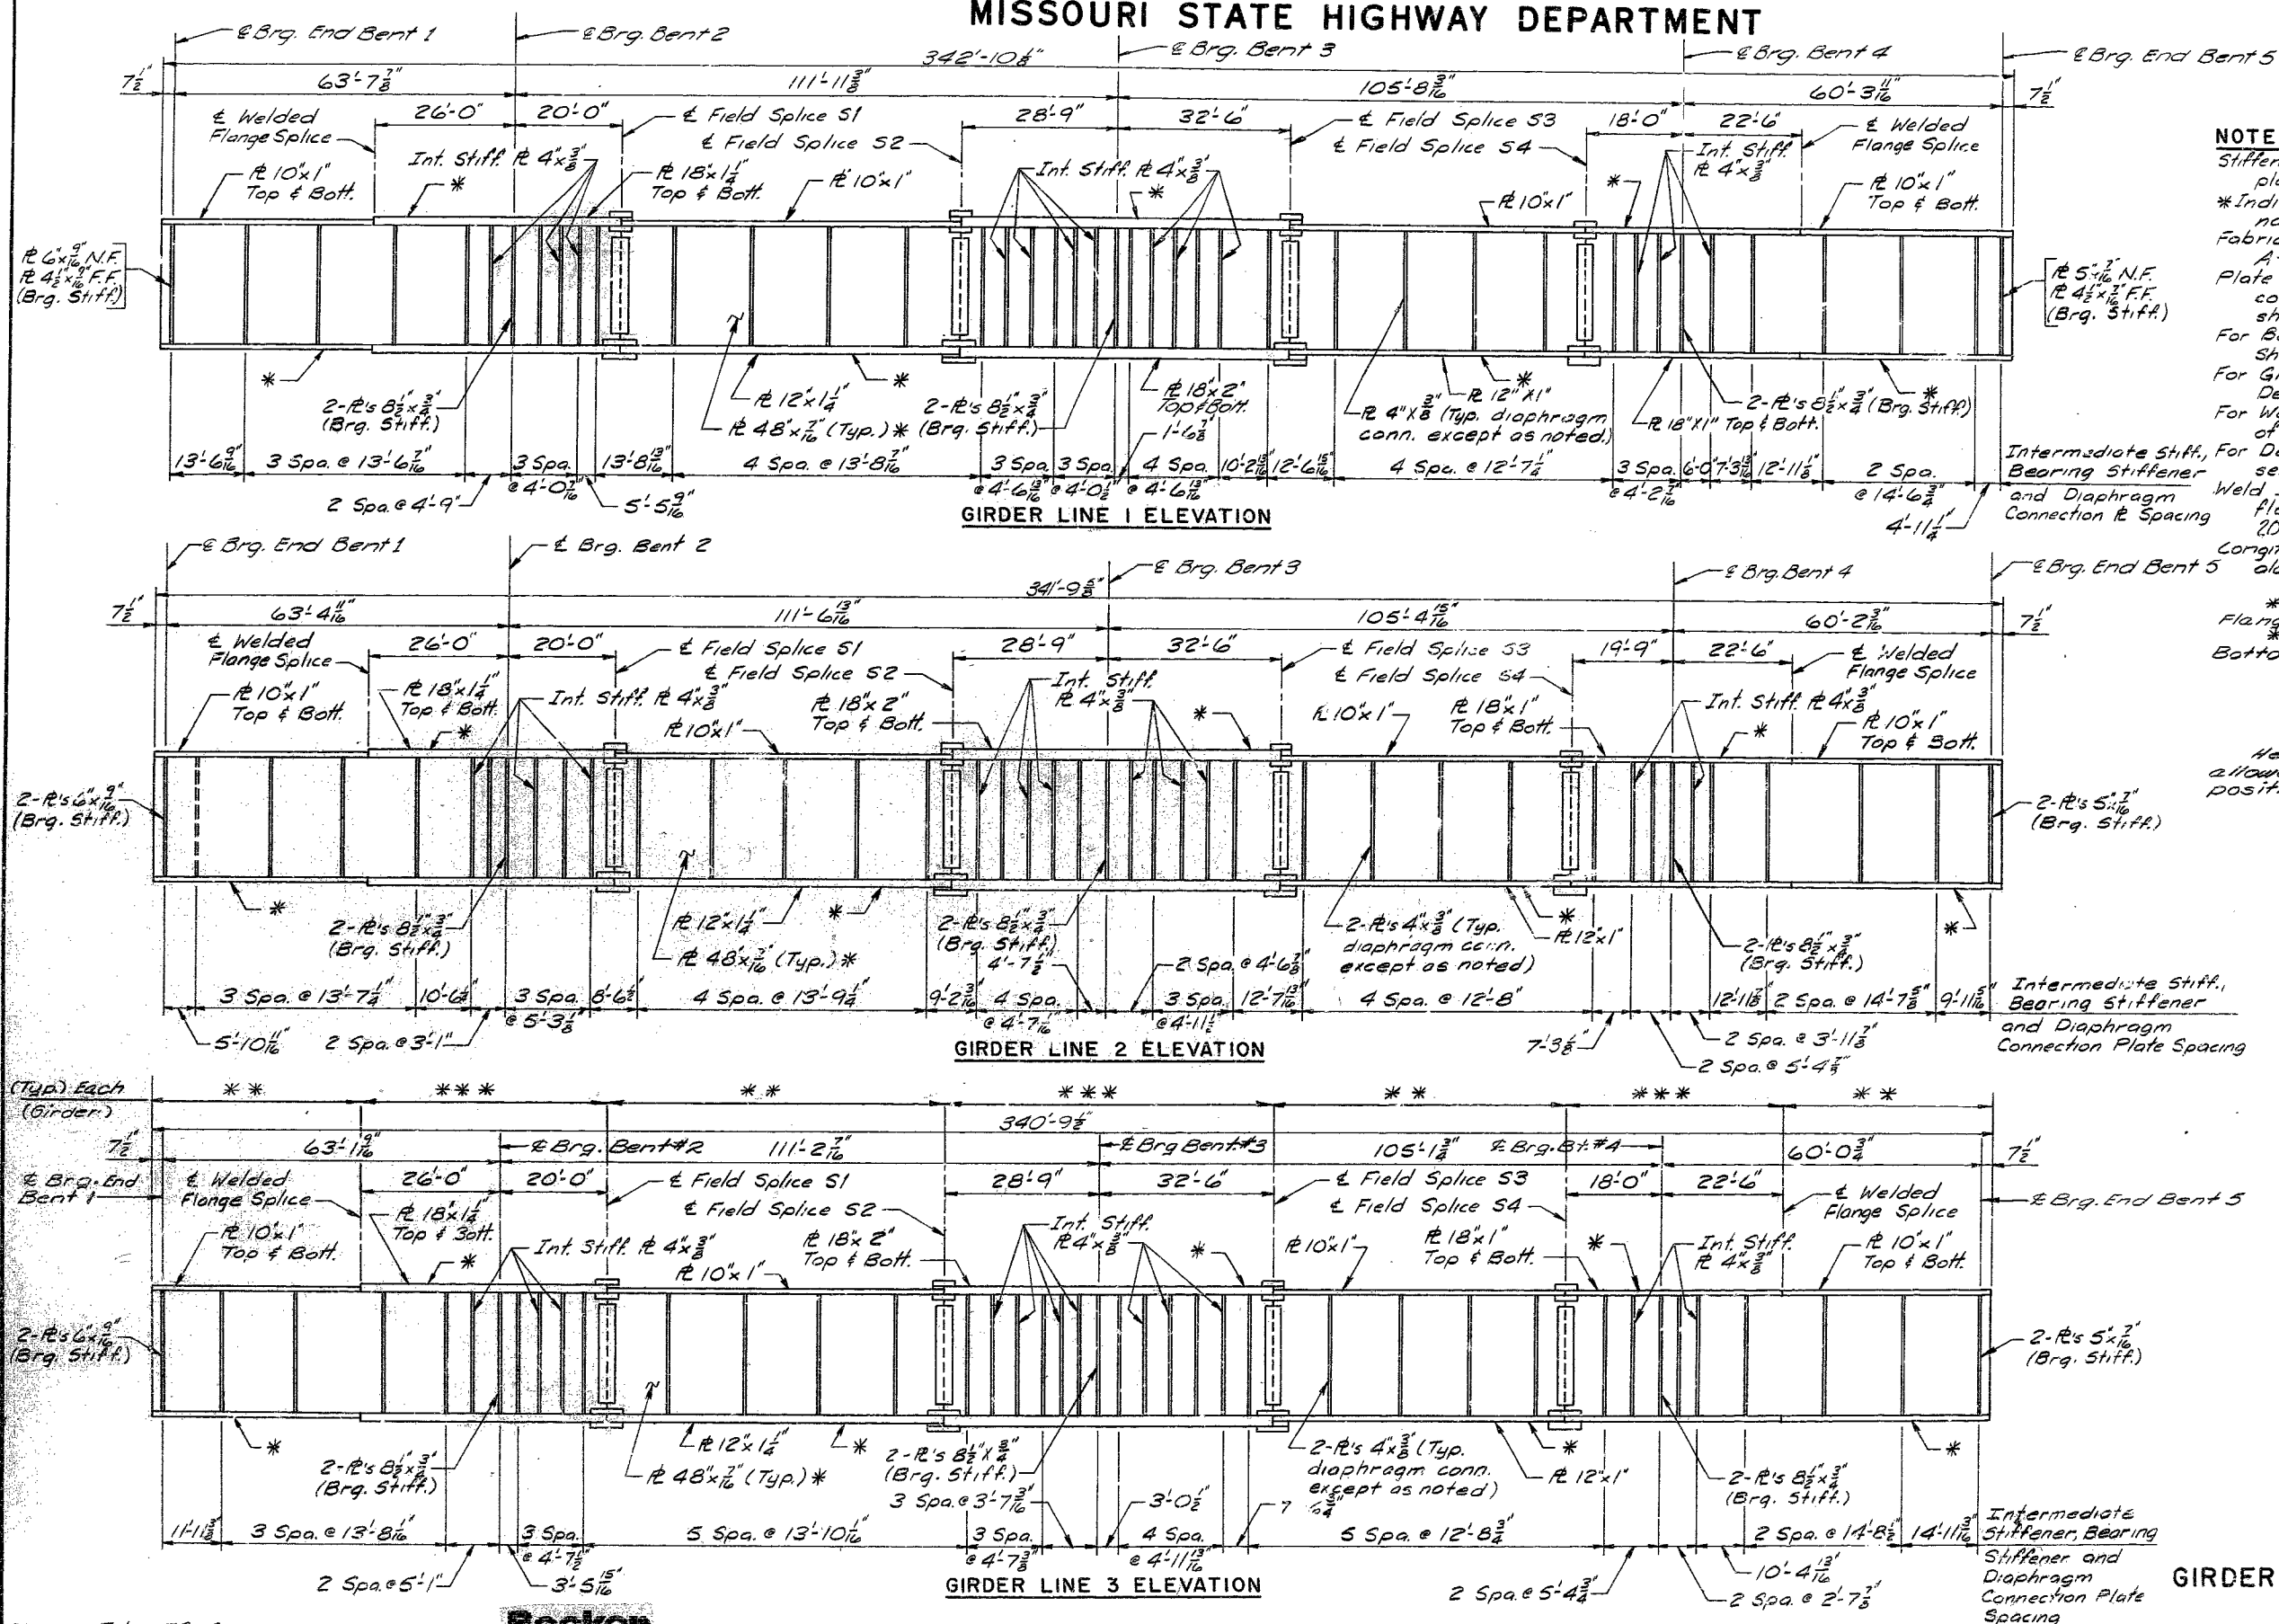 MISSOURI STATE HIGHWAY DEPARTMENT
℄ Brg. End Bent 1
℄ Brg. Bent 2
℄ Brg. Bent 3
℄ Brg. Bent 4
℄ Brg. End Bent 5
342'-10⅛"
7½"
63'-7⅞"
111'-11⅜"
105'-8 3/16"
60'-3 11/16"
7½"
℄ Welded
Flange Splice
26'-0"
20'-0"
℄ Field Splice S1
℄ Field Splice S2
28'-9"
32'-6"
℄ Field Splice S3
℄ Field Splice S4
18'-0"
22'-6"
℄ Welded
Flange Splice
℞ 10"x1"
Top & Bott.
*
Int. Stiff. ℞ 4"x⅜"
℞ 18"x1¼"
Top & Bott.
℞ 10"x1"
Int. Stiff. ℞ 4"x⅜"
*
℞ 10"x1"
*
Int. Stiff.
℞ 4"x⅜"
℞ 10"x1"
Top & Bott.
℞ 6"x9/16" N.F.
℞ 4½"x9/16" F.F.
(Brg. Stiff.)
℞ 5"x7/16" N.F.
℞ 4½"x7/16" F.F.
(Brg. Stiff.)
*
2-℞'s 8½"x¾"
(Brg. Stiff.)
℞ 12"x1¼"
*
℞ 48"x7/16" (Typ.) *
2-℞'s 8½"x¾"
(Brg. Stiff.)
℞ 18"x2"
Top & Bott.
1'-6⅞"
℞ 4"x⅜" (Typ. diaphragm
conn. except as noted.)
℞ 12"x1"
*
℞ 18"x1" Top & Bott.
2-℞'s 8½"x¾" (Brg. Stiff.)
*
13'-6 9/16"
3 Spa. @ 13'-6 7/16"
2 Spa. @ 4'-9"
3 Spa.
@ 4'-0 7/16"
13'-8 13/16"
5'-5 9/16"
4 Spa. @ 13'-8 7/16"
3 Spa.
@ 4'-6 13/16"
3 Spa.
@ 4'-0½"
4 Spa.
@ 4'-6 13/16"
12'-6 15/16"
4 Spa. @ 12'-7¼"
3 Spa.
@ 4'-2 7/16"
6'-0"
12'-11⅛"
2 Spa.
@ 14'-6¾"
4'-11¼"
Intermediate Stiff.,
Bearing Stiffener
and Diaphragm
Connection ℞ Spacing
GIRDER LINE 1 ELEVATION
NOTE
For
For
For
of
For
Weld
℄ Brg. End Bent 1
℄ Brg. Bent 2
℄ Brg. Bent 3
℄ Brg. Bent 4
℄ Brg. End Bent 5
341'-9⅝"
7½"
63'-4 11/16"
111'-6 13/16"
105'-4 15/16"
60'-2 3/16"
7½"
℄ Welded
Flange Splice
26'-0"
20'-0"
℄ Field Splice S1
℄ Field Splice S2
28'-9"
32'-6"
℄ Field Splice S3
℄ Field Splice S4
19'-9"
22'-6"
℄ Welded
Flange Splice
℞ 10"x1"
Top & Bott.
℞ 18"x1¼"
Top & Bott.
*
Int. Stiff. ℞ 4"x⅜"
℞ 10"x1"
℞ 18"x2"
Top & Bott.
Int. Stiff.
℞ 4"x⅜"
*
℞ 10"x1"
℞ 18"x1"
Top & Bott.
Int. Stiff. ℞ 4"x⅜"
*
℞ 10"x1"
Top & Bott.
2-℞'s 6"x9/16"
(Brg. Stiff.)
2-℞'s 5"x7/16"
(Brg. Stiff.)
*
2-℞'s 8½"x¾"
(Brg. Stiff.)
℞ 12"x1¼"
*
℞ 48"x7/16" (Typ.) *
2-℞'s 8½"x¾"
(Brg. Stiff.)
4'-7½"
2 Spa. @ 4'-6⅞"
2-℞'s 4"x⅜" (Typ.
diaphragm conn.
except as noted)
*
℞ 12"x1"
2-℞'s 8½"x¾"
(Brg. Stiff.)
*
5'-10 11/16"
3 Spa. @ 13'-7¼"
2 Spa. @ 3'-1"
3 Spa.
@ 5'-3⅛"
8'-6½"
4 Spa. @ 13'-9¼"
9'-2 3/16"
4 Spa.
@ 4'-7 1/16"
3 Spa.
@ 4'-11½"
12'-7 13/16"
4 Spa. @ 12'-8"
7'-3⅜"
2 Spa. @ 3'-11⅞"
12'-11⅞"
2 Spa. @ 14'-7⅝"
9'-11 5/16"
Intermediate Stiff.,
Bearing Stiffener
and Diaphragm
Connection Plate Spacing
GIRDER LINE 2 ELEVATION
(Typ.) Each
(Girder)
**
***
**
***
**
***
**
340'-9½"
7½"
63'-1 9/16"
℄ Brg. Bent #2
111'-2 7/16"
℄ Brg Bent #3
105'-1¾"
℄ Brg. Bt. #4
60'-0¾"
7½"
℄ Brg. End
Bent 1
℄ Welded
Flange Splice
26'-0"
20'-0"
℄ Field Splice S1
℄ Field Splice S2
28'-9"
32'-6"
℄ Field Splice S3
℄ Field Splice S4
18'-0"
22'-6"
℄ Welded
Flange Splice
℄ Brg. End Bent 5
℞ 10"x1"
Top & Bott.
℞ 18"x1¼"
Top & Bott.
*
Int. Stiff. ℞ 4"x⅜"
℞ 10"x1"
℞ 18"x 2"
Top & Bott.
Int. Stiff.
℞ 4"x⅜"
*
℞ 10"x1"
℞ 18"x1"
Top & Bott.
*
Int. Stiff.
℞ 4"x⅜"
℞ 10"x1"
Top & Bott.
2-℞'s 6"x9/16"
(Brg. Stiff.)
2-℞'s 5"x7/16"
(Brg. Stiff.)
*
2-℞'s 8½"x¾"
(Brg. Stiff.)
℞ 12"x1¼"
*
℞ 48"x7/16" (Typ.) *
2-℞'s 8½"x¾"
(Brg. Stiff.)
3 Spa. @ 3'-7 3/16"
3'-0½"
2-℞'s 4"x⅜" (Typ.
diaphragm conn.
except as noted)
*
℞ 12"x1"
2-℞'s 8½"x¾"
(Brg. Stiff.)
*
11'-11⅜"
3 Spa. @ 13'-8 1/16"
2 Spa. @ 5'-1"
3'-5 15/16"
3 Spa.
@ 4'-7½"
5 Spa. @ 13'-10 1/16"
3 Spa.
@ 4'-7⅜"
4 Spa.
@ 4'-11 13/16"
5 Spa. @ 12'-8¾"
2 Spa. @ 5'-4¾"
2 Spa. @ 2'-7⅞"
10'-4 13/16"
2 Spa. @ 14'-8½"
14'-11 3/16"
Intermediate
Stiffener, Bearing
Stiffener and
Diaphragm
Connection Plate
Spacing
GIRDER LINE 3 ELEVATION
GIRDER